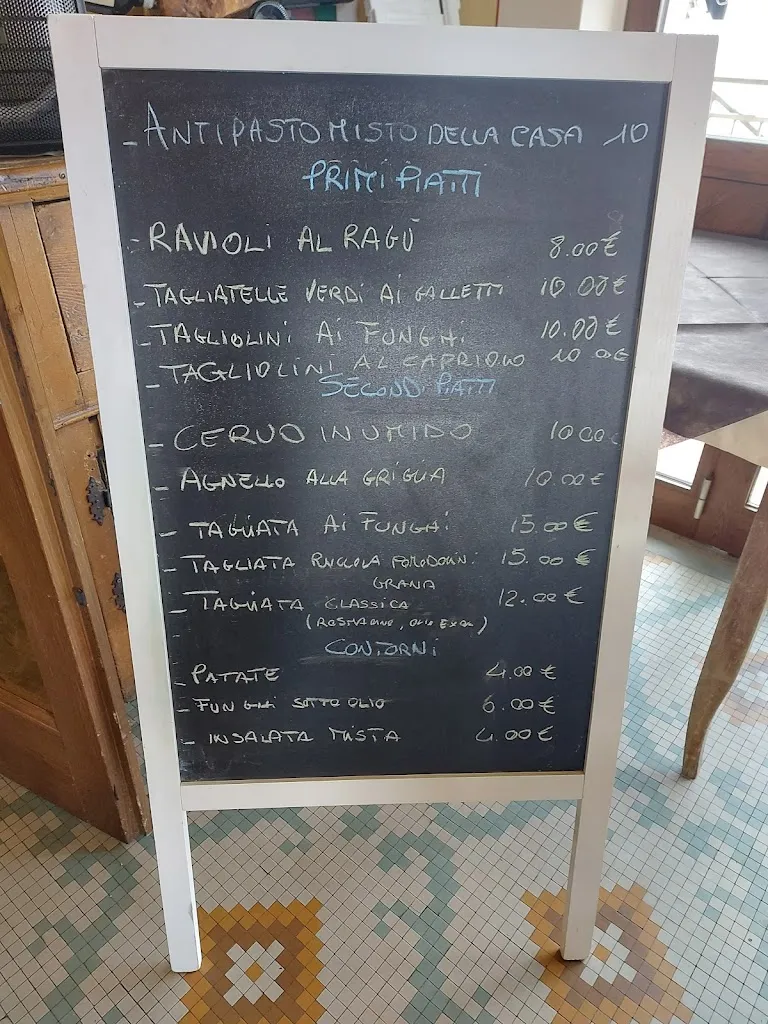 - ANTIPASTO MISTO DELLA CASA 10
PRIMI PIATTI
- RAVIOLI AL RAGÙ 8.00€
- TAGLIATELLE VERDI AI GALLETTI 10.00€
- TAGLIOLINI AI FUNGHI 10.00€
- TAGLIOLINI AL CAPRIOLO 10 00€
SECONDI PIATTI
- CERVO IN UMIDO 10 00€
- AGNELLO ALLA GRIGLIA 10.00€
- TAGLIATA AI FUNGHI 15.00€
- TAGLIATA RUCOLA POMODORINI 15.00€
GRANA
- TAGLIATA CLASSICA 12.00€
(ROSMARINO, OLIO EXTRA)
CONTORNI
- PATATE 4.00€
- FUNGHI SOTTO OLIO 6.00€
- INSALATA MISTA 4.00€